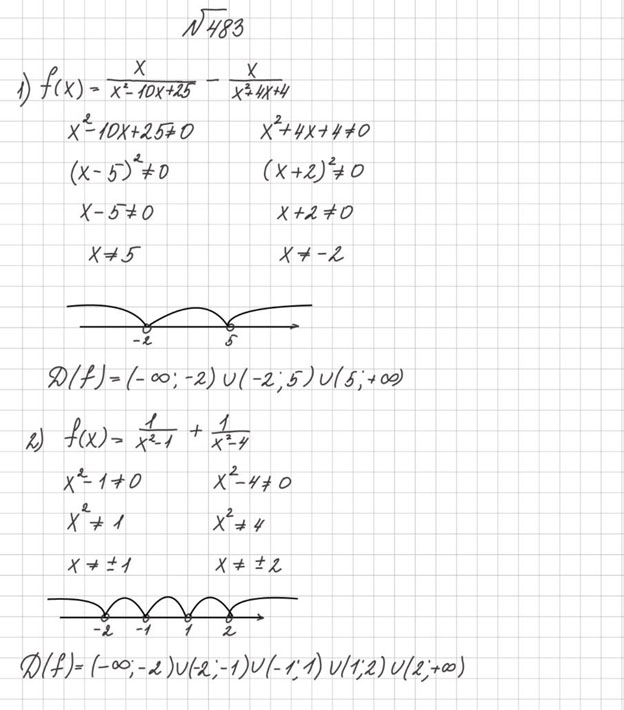 №483
1) f(x) = x/(x²-10x+25) - x/(x²+4x+4)
x²-10x+25≠0 x²+4x+4≠0
(x-5)²≠0 (x+2)²≠0
x-5≠0 x+2≠0
x≠5 x≠-2
-2 5
D(f)=(-∞;-2)∪(-2;5)∪(5;+∞)
2) f(x) = 1/(x²-1) + 1/(x²-4)
x²-1≠0 x²-4≠0
x²≠1 x²≠4
x≠±1 x≠±2
-2 -1 1 2
D(f)=(-∞;-2)∪(-2;-1)∪(-1;1)∪(1;2)∪(2;+∞)